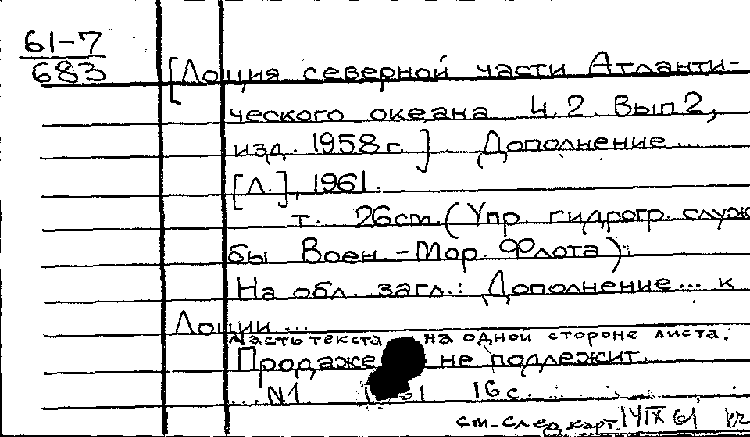 61-7
683
[Лоция северной части Атланти-
ческого океана Ч. 2. Вып 2,
изд. 1958 г.] Дополнение ...
[Л.], 1961.
т. 26 см. (Упр. гидрогр. служ
бы Воен.-Мор. Флота).
На обл. загл.: Дополнение ... к
Лоции ...
Часть текста на одной стороне листа.
Продаже не подлежит.
... N1. 16 с.
см. след. карт. 14 IX 61